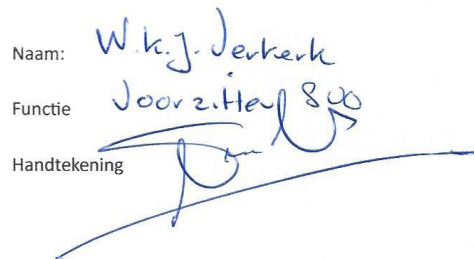 Naam: W.K.J. Verkerk
Functie Voorzitter
Handtekening